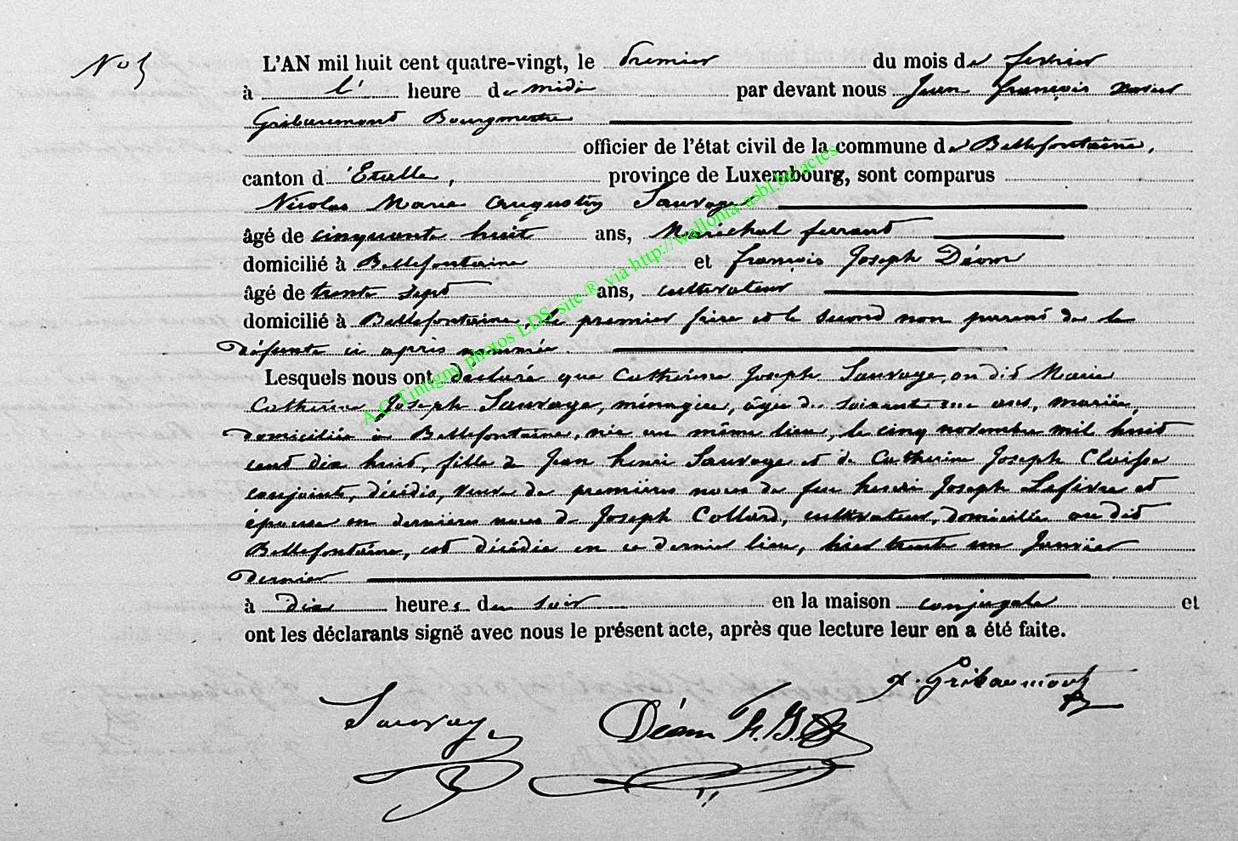 No 5
L'AN mil huit cent quatre-vingt, le premier du mois de fevrier
à l' heure de midi par devant nous Jean françois xavier
Gribaumont Bourgmestre
officier de l'état civil de la commune de Bellefontaine,
canton d'Etalle, province de Luxembourg, sont comparus
Nicolas Marie Augustin Sauvage
âgé de cinquante huit ans, Maréchal ferrant
domicilié à Bellefontaine et françois Joseph Déom
âgé de trente sept ans, cultivateur
domicilié à Bellefontaine, le premier frère et le second non parent de la
défunte ci après nommée.
Lesquels nous ont déclaré que Catherine Joseph Sauvage, ou dit Marie
Catherine Joseph Sauvage, ménagère, âgée de soixante une ans, mariée,
domiciliée à Bellefontaine, née au même lieu, le cinq novembre mil huit
cent dix huit, fille de Jean henri Sauvage et de Catherine Joseph Claisse
conjoints, décédés, veuve de premières noces de feu henri Joseph Lefèvre et
épouse en dernières noces de Joseph Collard, cultivateur, domicilié au dit
Bellefontaine, est décédée en ce dernier lieu, hier trente un Janvier
dernier
à dix heures du soir en la maison conjugale et
ont les déclarants signé avec nous le présent acte, après que lecture leur en a été faite.
x. Gribaumont
Sauvage Déom F. J.
A.G Tintigny photos LDS site ® via http://wallonia-asbl.be/actes